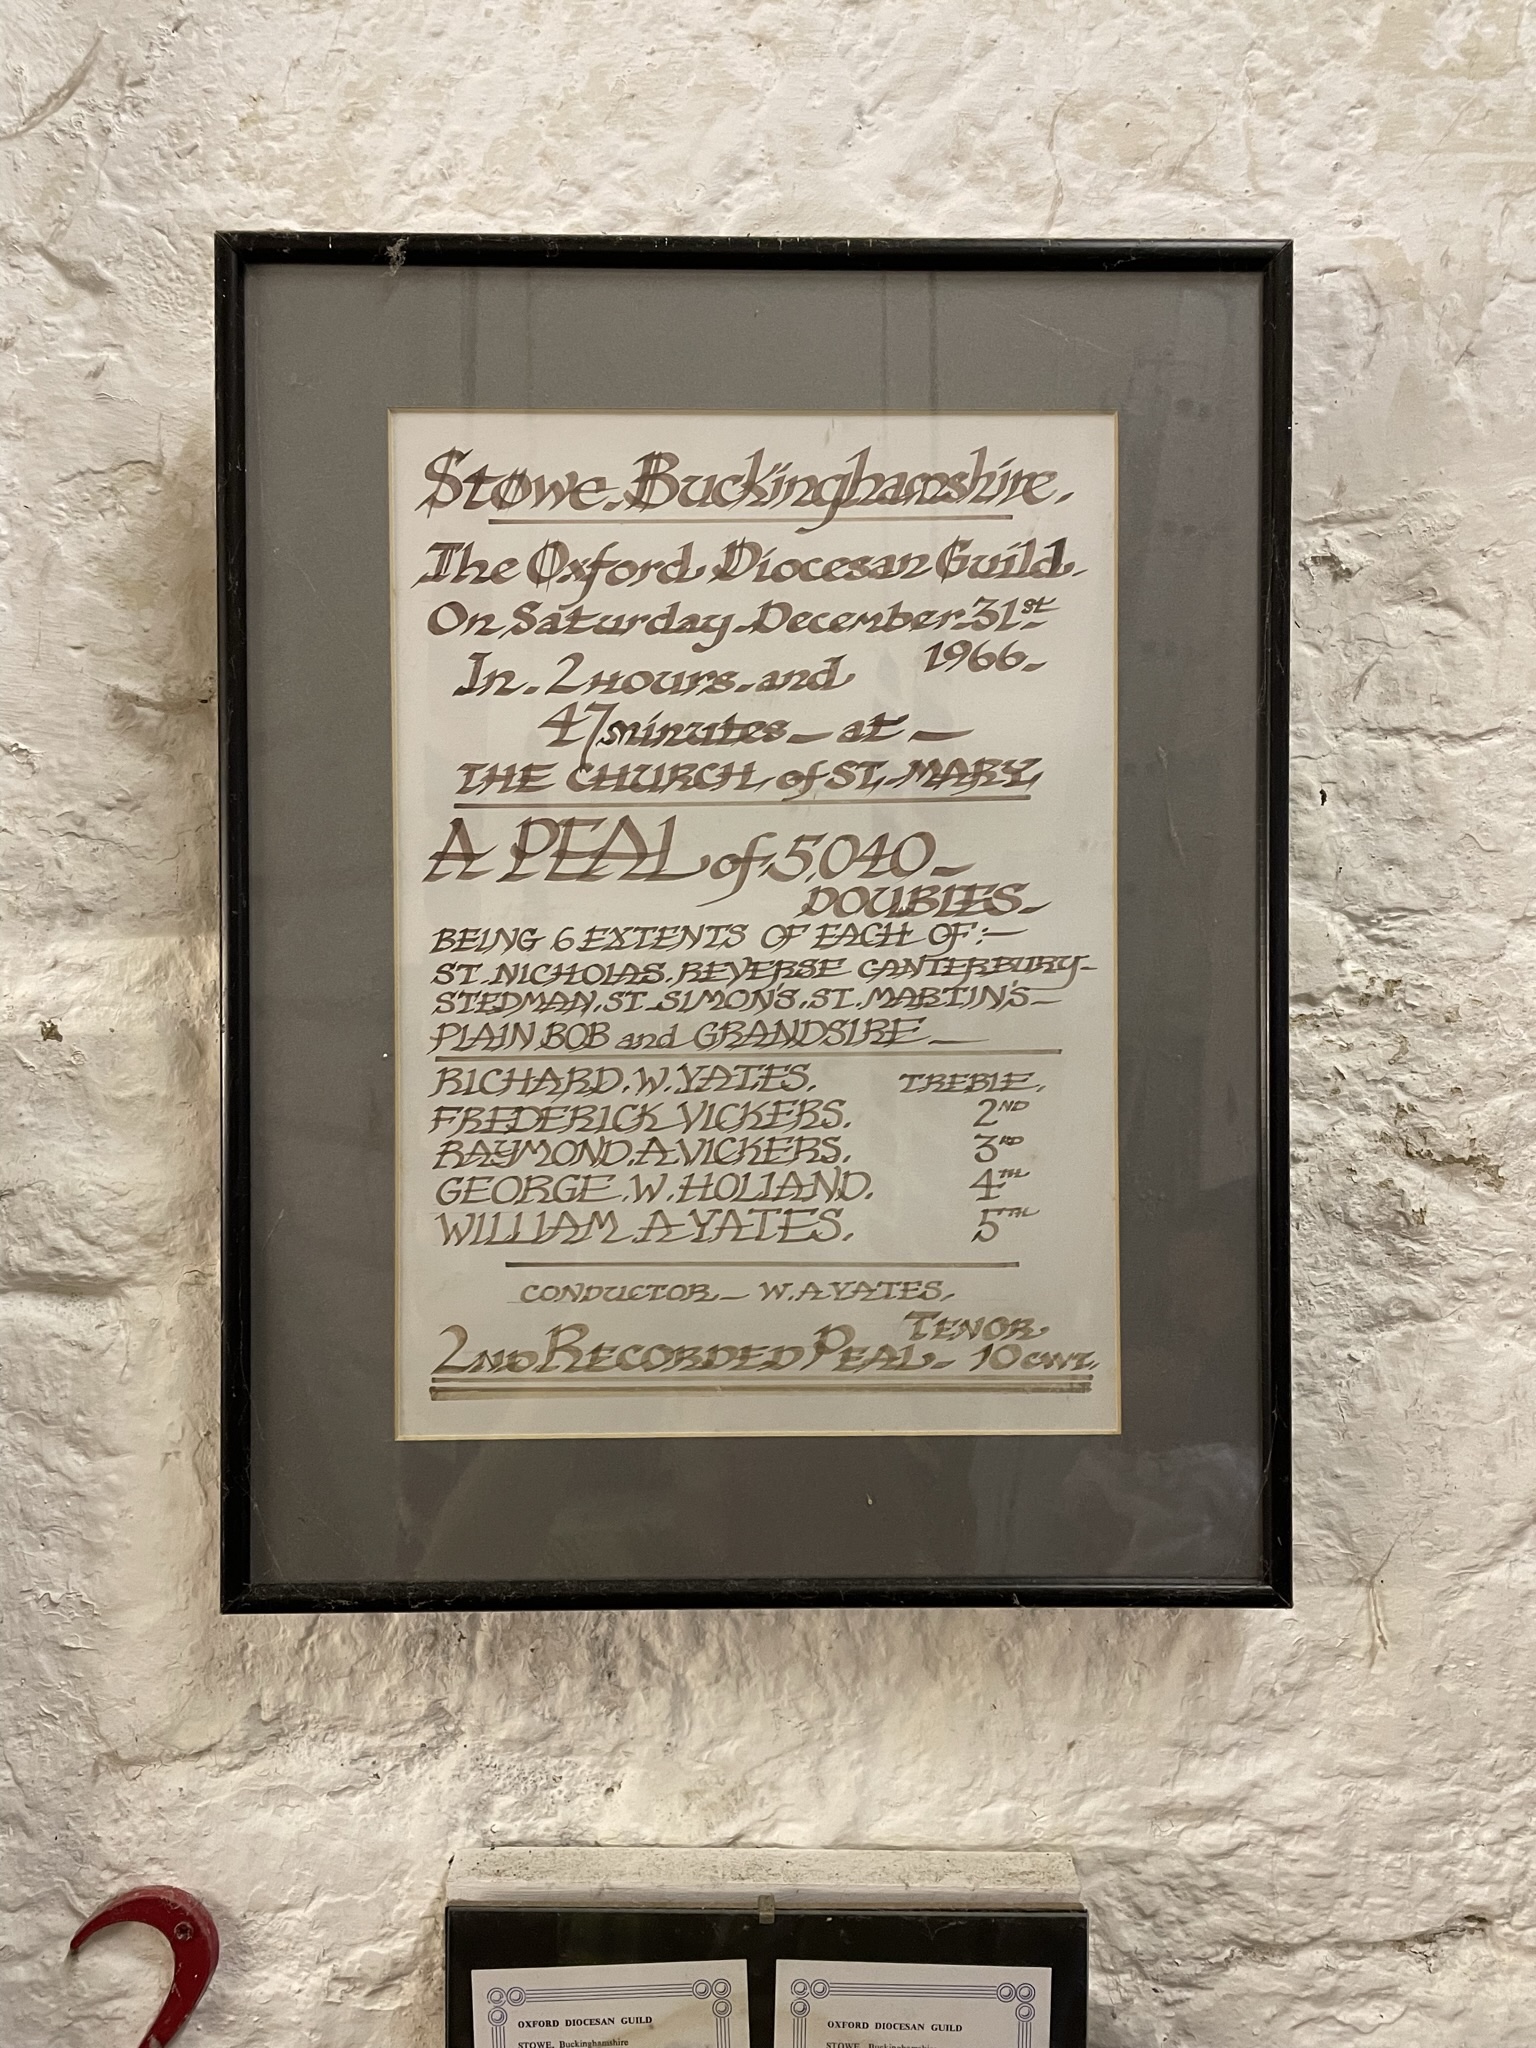 Stowe. Buckinghamshire.
The Oxford Diocesan Guild.
On Saturday. December. 31st
1966.
In. 2 Hours. and
47 minutes — at —
THE CHURCH of ST. MARY.
A PEAL of 5,040 —
DOUBLES.
BEING 6 EXTENTS OF EACH OF :—
ST. NICHOLAS. REVERSE CANTERBURY —
STEDMAN. ST. SIMON'S. ST. MARTIN'S —
PLAIN BOB and GRANDSIRE —
RICHARD. W. YATES. TREBLE.
FREDERICK VICKERS. 2ND
RAYMOND. A. VICKERS. 3RD
GEORGE. W. HOLLAND. 4TH
WILLIAM A YATES. 5TH
CONDUCTOR — W. A YATES.
2ND RECORDED PEAL. TENOR 10 cwt.
OXFORD DIOCESAN GUILD
STOWE, Buckinghamshire
OXFORD DIOCESAN GUILD
STOWE, Buckinghamshire